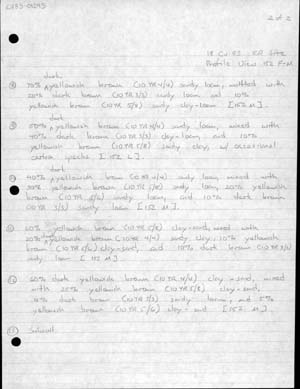 2 of 2
18 CV 83 - ER Site
Profile View 152 F-M
dark
70% yellowish brown (10 YR 4/4) sandy loam, mottled with
20% dark brown (10 YR 3/3) sandy loam and 10%
yellowish brown (10 YR 5/6) sandy clay-loam [152 M]
dark
50% yellowish brown (10 YR 4/4) sandy loam, mixed with
40% dark brown (10 YR 3/3) clay-loam, and 10%
yellowish brown (10 YR 5/8) sandy clay, w/ occasional
carbon specks [152 L]
dark
40% yellowish brown (10 YR 4/4) sandy loam, mixed with
30% yellowish brown (10 YR 5/8) sandy loam, 20% yellowish
brown (10 YR 5/6) sandy loam, and 10% dark brown
(10 YR 3/3) sandy loam [152 M]
60% yellowish brown (10 YR 5/8) clay-sand, mixed with
20% yellowish brown (10 YR 4/4) sandy clay, 10% yellowish
brown (10 YR 5/6) clay-sand, and 10% dark brown (10 YR 3/3)
sandy loam [152 M]
60% dark yellowish brown (10 YR 4/4) clay-sand, mixed
with 25% yellowish brown (10 YR 5/8) clay-sand,
10% dark brown (10 YR 3/3) sandy loam, and 5%
yellowish brown (10 YR 5/6) clay-sand [152 M]
Subsoil